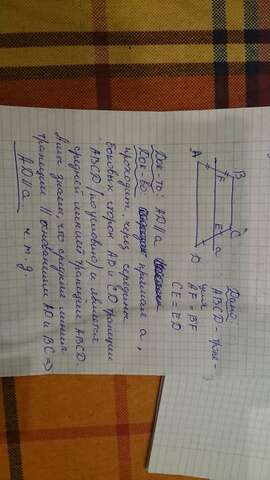 Дано:
ABCD - трапе-
ция
AF = BF
CE = ED
B
F
A
C
E
a
D
Док-ть: AD || a
Док-во: прямая a,
проходит через середины
боковых сторон AB и CD трапеции
ABCD /по условию/ и является
средней линией трапеции ABCD.
А мы знаем, что средняя линия
трапеции || основаниям AD и BC ⇒
AD || a ч.т.д.